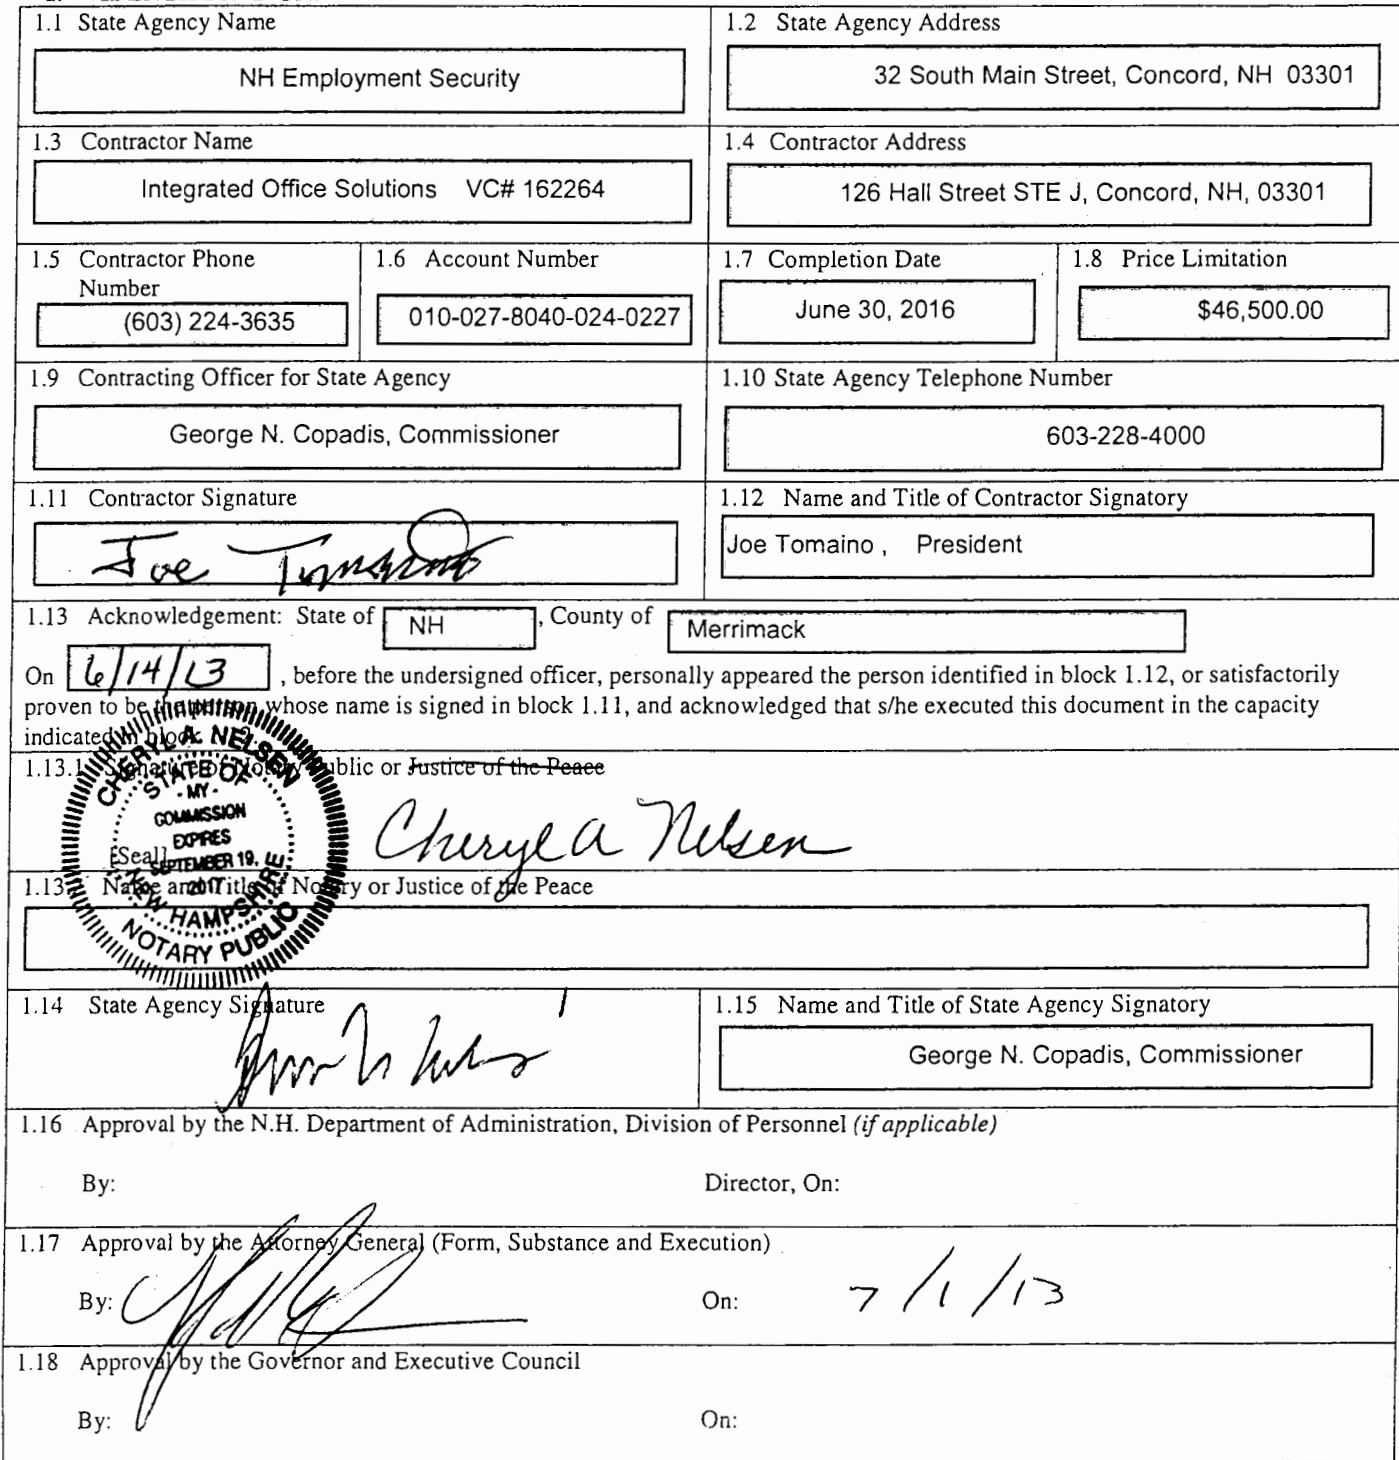 1.1 State Agency Name
NH Employment Security
1.2 State Agency Address
32 South Main Street, Concord, NH 03301
1.3 Contractor Name
Integrated Office Solutions VC# 162264
1.4 Contractor Address
126 Hall Street STE J, Concord, NH, 03301
1.5 Contractor Phone
Number
(603) 224-3635
1.6 Account Number
010-027-8040-024-0227
1.7 Completion Date
June 30, 2016
1.8 Price Limitation
$46,500.00
1.9 Contracting Officer for State Agency
George N. Copadis, Commissioner
1.10 State Agency Telephone Number
603-228-4000
1.11 Contractor Signature
Joe Tomaino
1.12 Name and Title of Contractor Signatory
Joe Tomaino , President
1.13 Acknowledgement: State of NH , County of Merrimack
On 6/14/13 , before the undersigned officer, personally appeared the person identified in block 1.12, or satisfactorily
proven to be the person whose name is signed in block 1.11, and acknowledged that s/he executed this document in the capacity
indicated in block
1.13.1 Signature of Notary Public or Justice of the Peace
Cheryl A Nelsen
[Seal]
CHERYL A. NELSEN
STATE OF
- MY -
COMMISSION
EXPIRES
SEPTEMBER 19,
2017
NEW HAMPSHIRE
NOTARY PUBLIC
1.13 Name and Title of Notary or Justice of the Peace
1.14 State Agency Signature
1.15 Name and Title of State Agency Signatory
George N. Copadis, Commissioner
1.16 Approval by the N.H. Department of Administration, Division of Personnel (if applicable)
By:
Director, On:
1.17 Approval by the Attorney General (Form, Substance and Execution)
By:
On: 7/1/13
1.18 Approval by the Governor and Executive Council
By:
On: